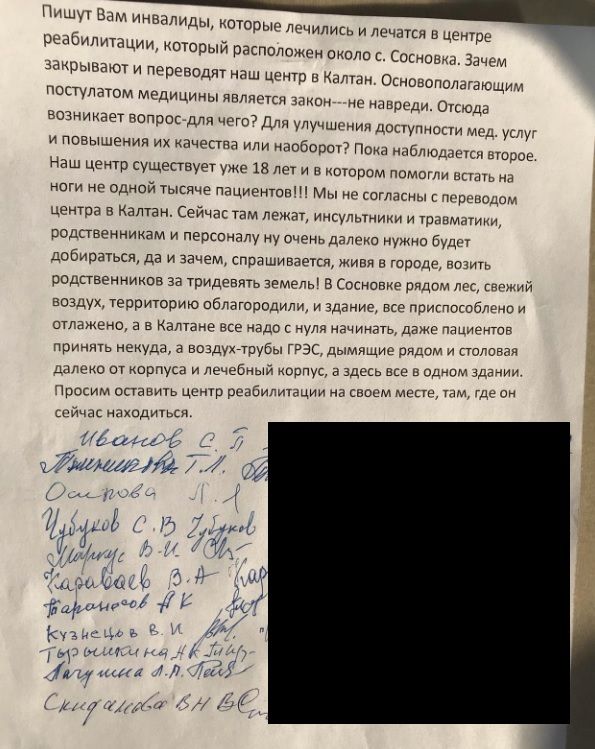 Пишут Вам инвалиды, которые лечились и лечатся в центре
реабилитации, который расположен около с. Сосновка. Зачем
закрывают и переводят наш центр в Калтан. Основополагающим
постулатом медицины является закон---не навреди. Отсюда
возникает вопрос-для чего? Для улучшения доступности мед. услуг
и повышения их качества или наоборот? Пока наблюдается второе.
Наш центр существует уже 18 лет и в котором помогли встать на
ноги не одной тысяче пациентов!!! Мы не согласны с переводом
центра в Калтан. Сейчас там лежат, инсультники и травматики,
родственникам и персоналу ну очень далеко нужно будет
добираться, да и зачем, спрашивается, живя в городе, возить
родственников за тридевять земель! В Сосновке рядом лес, свежий
воздух, территорию облагородили, и здание, все приспособлено и
отлажено, а в Калтане все надо с нуля начинать, даже пациентов
принять некуда, а воздух-трубы ГРЭС, дымящие рядом и столовая
далеко от корпуса и лечебный корпус, а здесь все в одном здании.
Просим оставить центр реабилитации на своем месте, там, где он
сейчас находиться.
Иванов С. П
Т.Л.
Осипова Л. Я
Чубуков С. В Чубуков
Маркус В-И.
Караваев В. А Кар
А К
Кузнецов В. И
Тырышкина Н К
Л. А.
Скиданова В Н